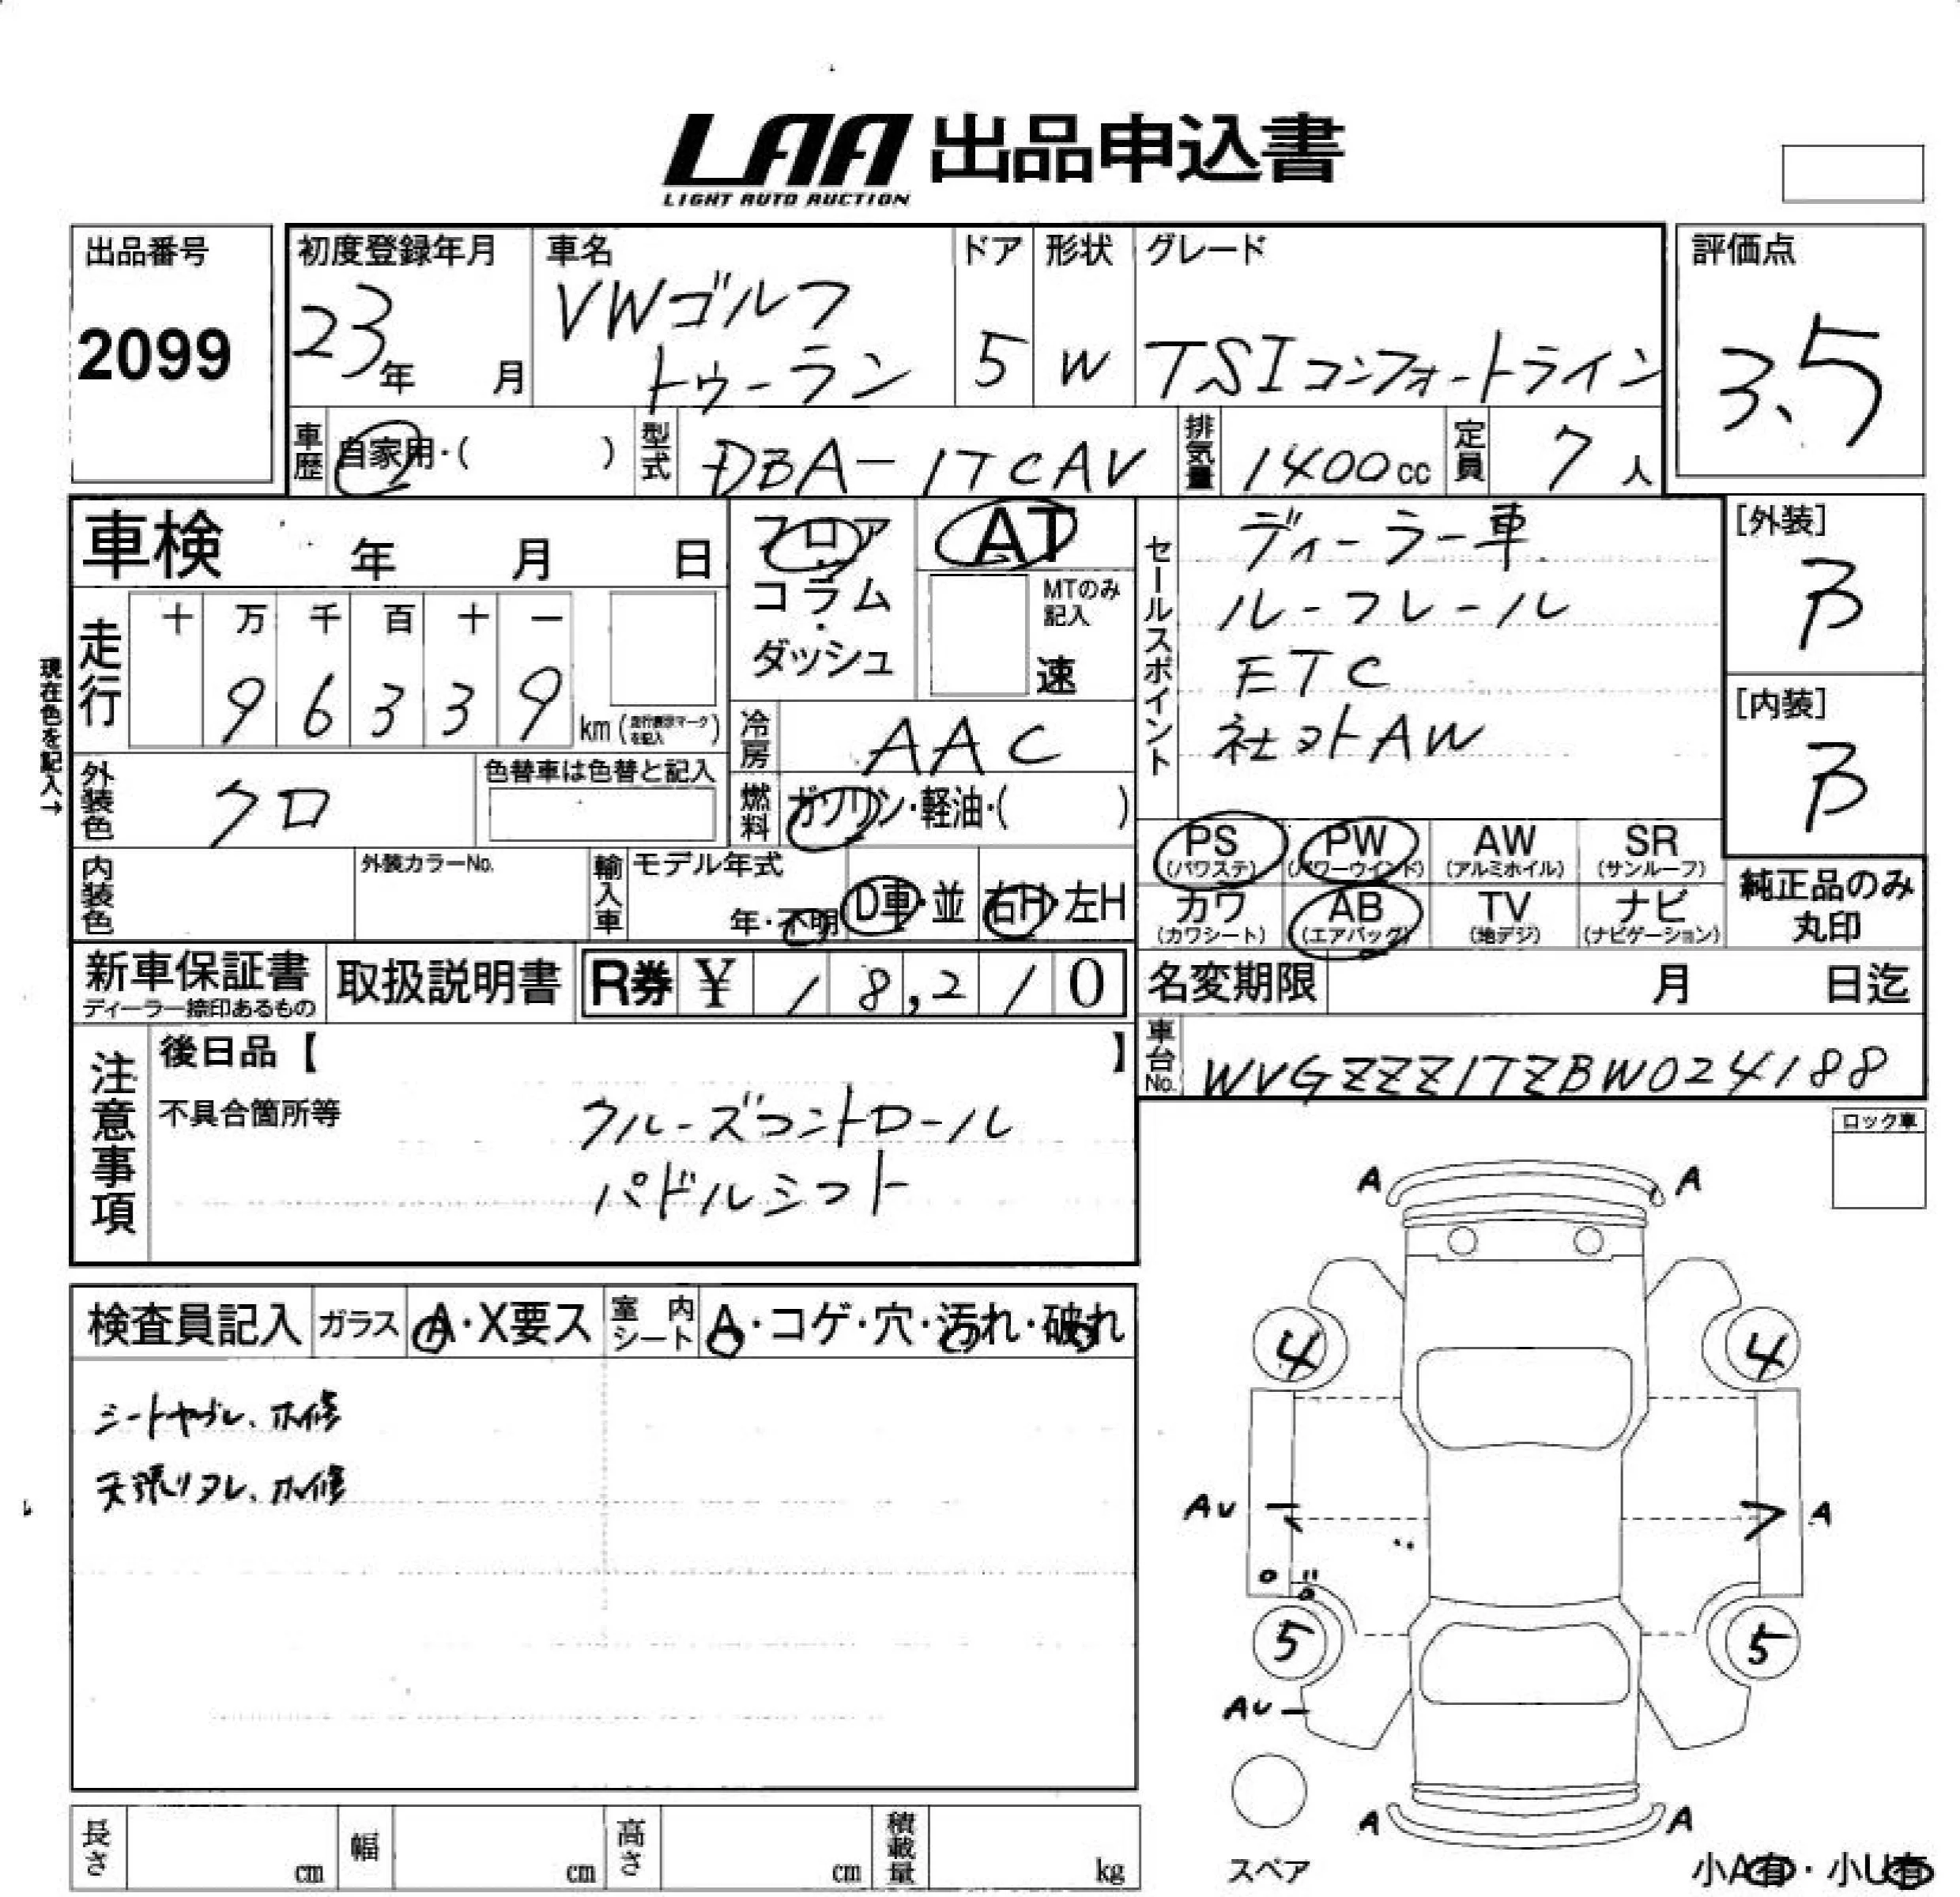 LAA 出品申込書
LIGHT AUTO AUCTION
出品番号
2099
初度登録年月
23年 月
車名
VWゴルフ
トゥーラン
ドア
5
形状
W
グレード
TSIコンフォートライン
評価点
3.5
車歴
自家用・( )
型式
DBA-1TCAV
排気量
1400cc
定員
7人
車検 年 月 日
フロア
・
コラム
・
ダッシュ
AT
MTのみ
記入
速
走行
十 万 千 百 十 一
9 6 3 3 9
km (走行表示マークを記入)
現在色を記入→
冷房
AAC
外装色
クロ
色替車は色替と記入
燃料
ガソリン・軽油・( )
内装色
外装カラーNo.
輸入車
モデル年式
年・不明
D車・並
右H・左H
セールスポイント
ディーラー車
ルーフレール
ETC
社外AW
[外装]
B
[内装]
B
PS
(パワステ)
PW
(パワーウインド)
AW
(アルミホイル)
SR
(サンルーフ)
カワ
(カワシート)
AB
(エアバッグ)
TV
(地デジ)
ナビ
(ナビゲーション)
純正品のみ
丸印
新車保証書
ディーラー捺印あるもの
取扱説明書
R券 ¥ 18,210
名変期限 月 日迄
車台No.
WVGZZZ1TZBW024188
注意事項
後日品【 】
不具合箇所等
クルーズコントロール
パドルシフト
ロック車
検査員記入
ガラス
A・X要ス
室内
シート
A・コゲ・穴・汚れ・破れ
シートヤブレ、ホ修
天張リタレ、ホ修
A A
4 4
AU A
5 5
AU
A A
スペア
小A有・小U有
長さ cm
幅 cm
高さ cm
積載量 kg